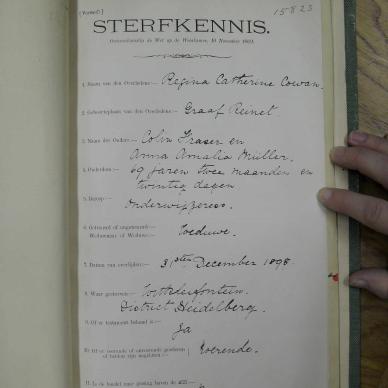 [Vorm D]
15823
STERFKENNIS.
Overeenkomstig de Wet op de Weeskamer, 10 November 1869.
1. Naam van den Overledene:— Regina Catherine Cowan.
2. Geboorteplaats van den Overledene:— Graaf Reinet
3. Namen der Ouders:— Colin Fraser en
Anna Amalia Müller.
4. Ouderdom:— 69 jaren twee maanden en
twintig dagen
5. Beroep:— Onderwijzeres.
6. Getrouwd of ongetrouwd:—
Weduwnaar of Weduwe:— Weduwe.
7. Datum van overlijden:— 31sten December 1898
8. Waar gestorven:—
District Heidelberg.
9. Of er testament bekend is:—
Ja
10. Of er roerende of onroerende goederen
of beiden zijn nagelaten:— Roerende.